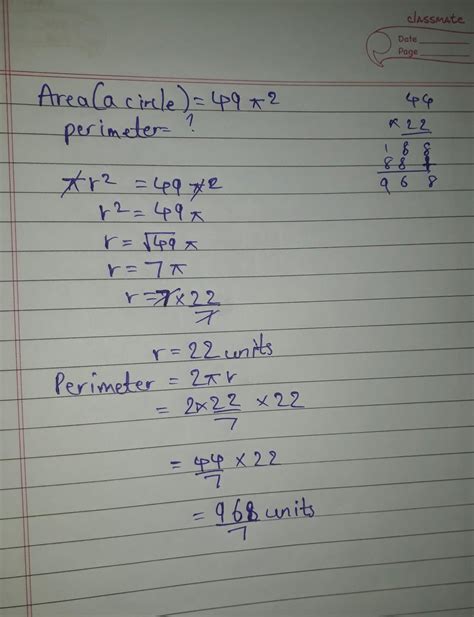 classmate
Date
Page
Area(a circle) = 49 π2
perimeter= ?
44
×22
188
88
968
πr² = 49 π2
r² = 49π
r = √49 π
r = 7π
r = 7×22/7
r = 22 units
Perimeter = 2πr
= 2×22/7 ×22
= 44/7 ×22
= 968/7 units